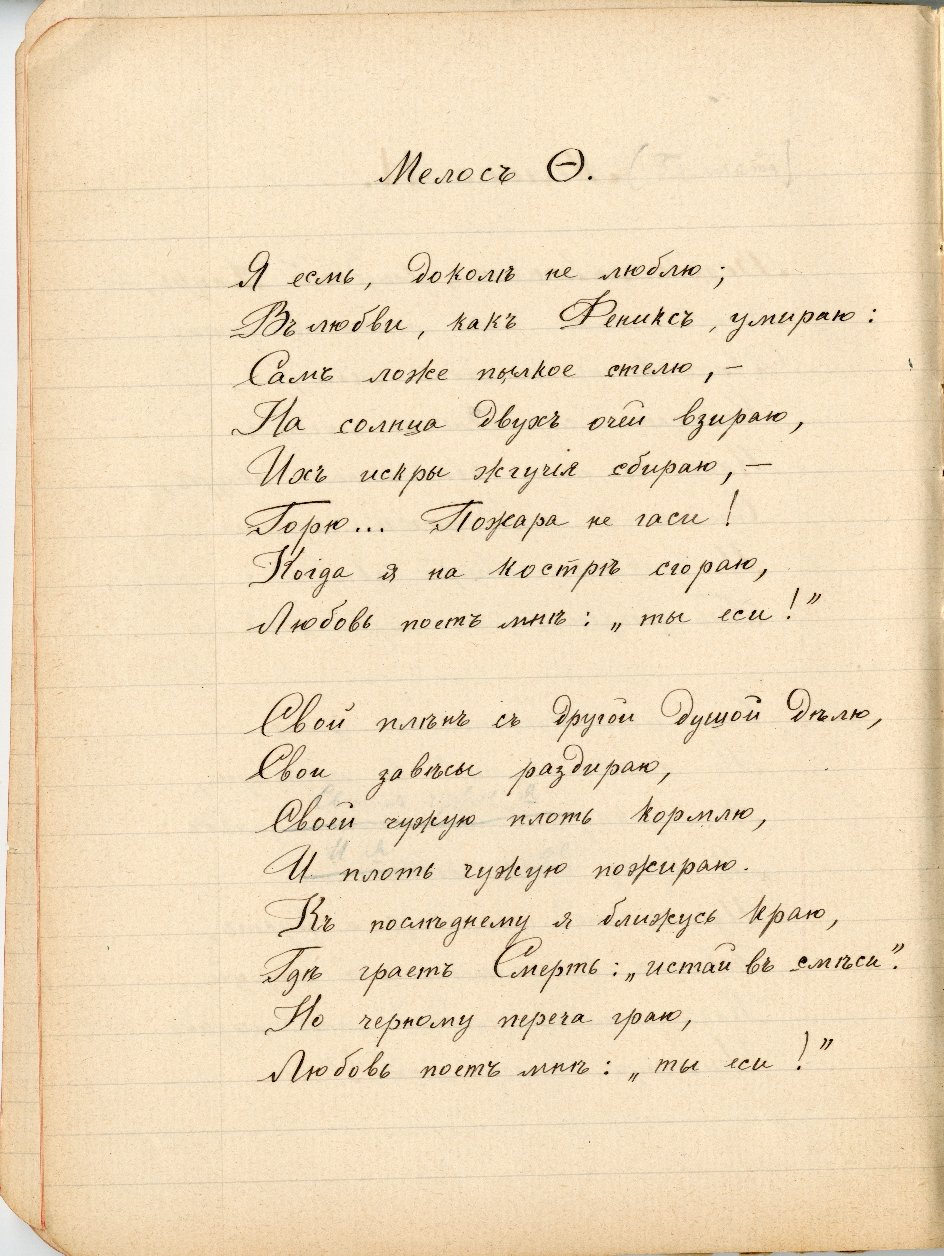 Мелосъ Ѳ.
Я есмь, доколѣ не люблю;
Въ любви, какъ Фениксъ, умираю:
Самъ ложе пылкое стелю, –
На солнца двухъ очей взираю,
Ихъ искры жгучія сбираю, –
Горю... Пожара не гаси!
Когда я на кострѣ сгораю,
Любовь поетъ мнѣ: „ты еси!”
Свой плѣнъ съ другой душой дѣлю,
Свои завѣсы раздираю,
Своей чужую плоть кормлю,
И плоть чужую пожираю.
Къ послѣднему я ближусь краю,
Гдѣ граетъ Смерть: „истай въ смѣси”.
Но черному переча граю,
Любовь поетъ мнѣ: „ты еси!”